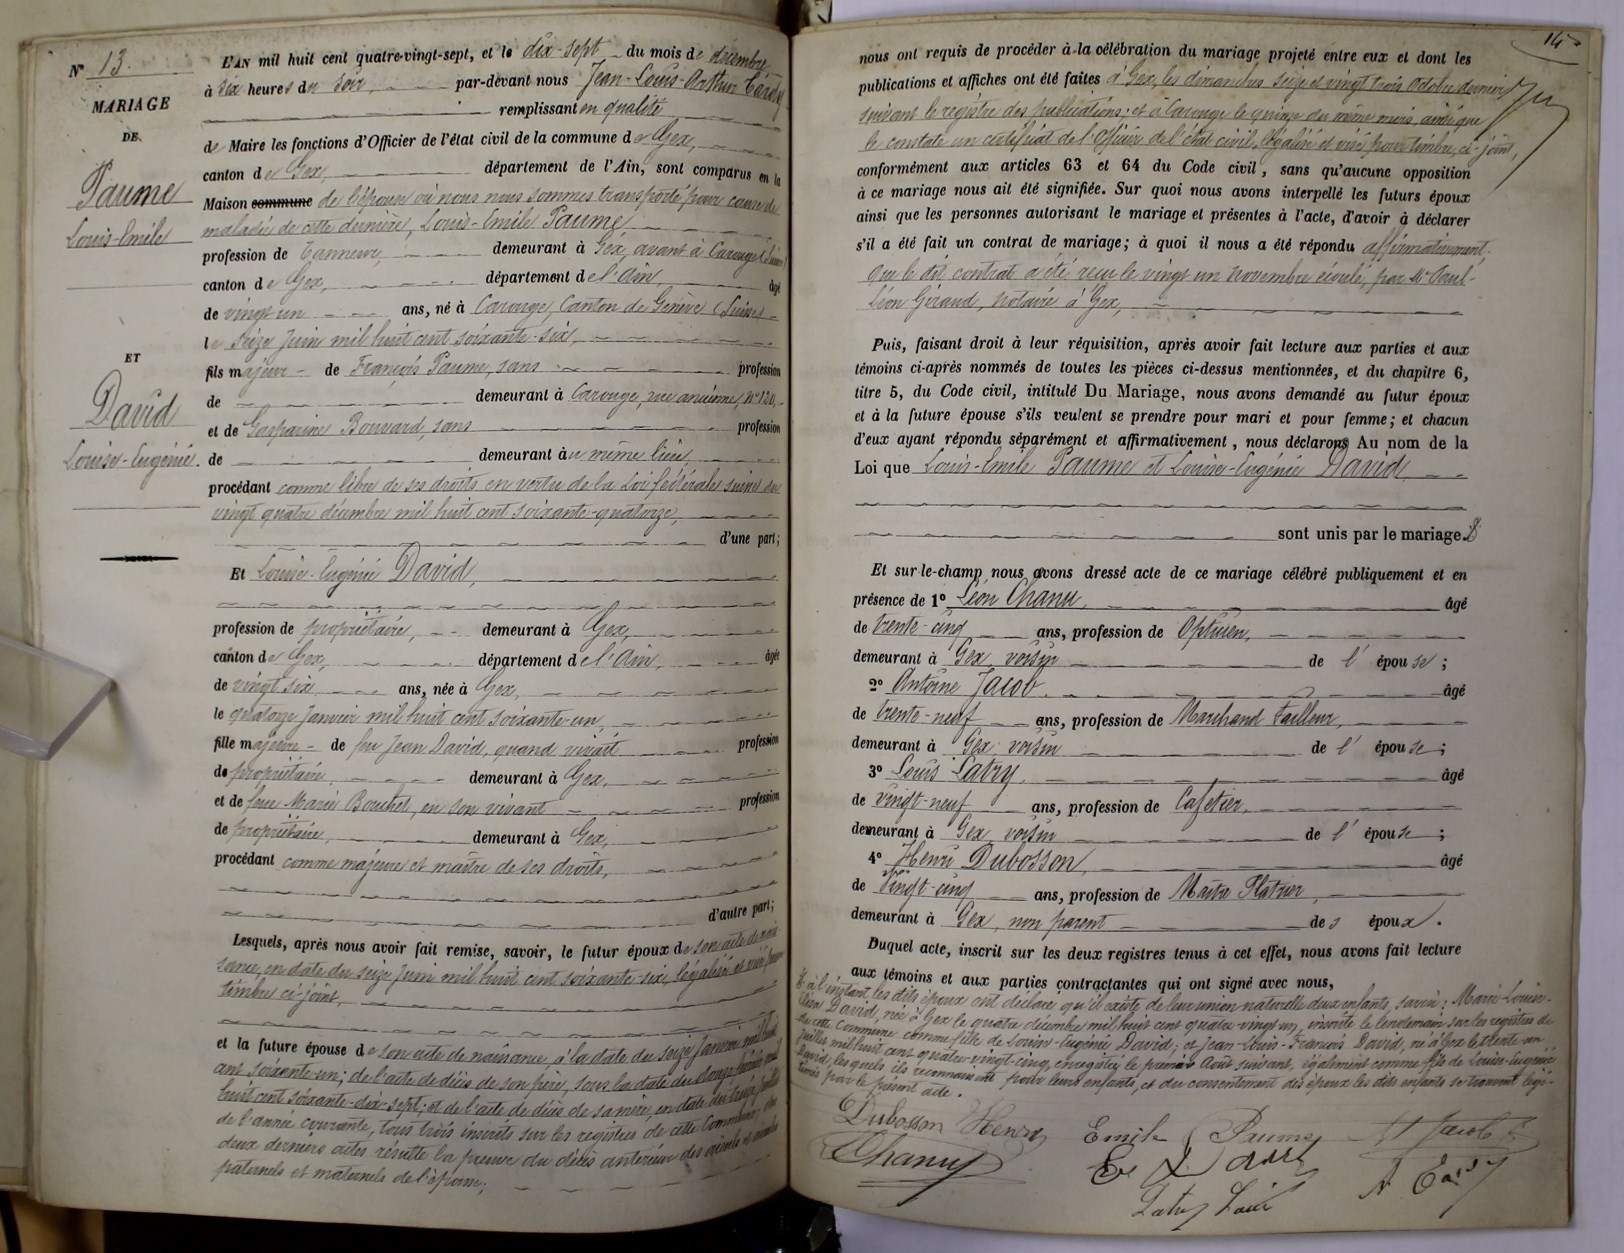 N° 13.
MARIAGE
DE
Paume
Louis-Emile
ET
David
Louise-Eugénie.
L'AN mil huit cent quatre-vingt-sept, et le dix-sept du mois de décembre
à six heures du soir, par-devant nous Jean-Louis-Arthur
remplissant en qualité
de Maire les fonctions d'Officier de l'état civil de la commune de Gex,
canton de Gex, département de l'Ain, sont comparus en la
Maison commune de l'épouse où nous nous sommes transporté pour cause de
maladie de cette dernière, Louis-Emile Paume
profession de Tanneur, demeurant à Gex, avant à Carouge (Suisse)
canton de Gex, département de l'Ain âgé
de vingt un ans, né à Carouge, Canton de Genève (Suisse)
le seize Juin mil huit cent soixante-six,
fils majeur de François Paume, sans profession
de demeurant à Carouge, rue ancienne, N° 120,
et de Gasparine Bouvard, sans profession
de demeurant au même lieu
procédant comme libre de ses droits en vertu de la Loi fédérale suisse du
vingt quatre décembre mil huit cent soixante-quatorze,
d'une part;
Et Louise-Eugénie David,
profession de propriétaire, demeurant à Gex,
canton de Gex, département de l'Ain, âgée
de vingt six ans, née à Gex,
le quatorze Janvier mil huit cent soixante-un,
fille majeure de feu Jean David, quand vivait profession
de propriétaire demeurant à Gex,
et de feue Marie Bouchet, en son vivant profession
de propriétaire, demeurant à Gex,
procédant comme majeure et maître de ses droits,
d'autre part;
Lesquels, après nous avoir fait remise, savoir, le futur époux de son acte de nais
sance, en date du seize Juin mil huit cent soixante six, légalisé et visé pour
timbre ci-joint,
et la future épouse de son acte de naissance, à la date du seize Janvier mil huit
cent soixante-un; de l'acte de décès de son père, sous la date du onze mil
huit cent soixante-dix-sept; et de l'acte de décès de sa mère, en date du treize Juillet
de l'année courante, tous trois inscrits sur les registres de cette Commune, des
deux derniers actes résulte la preuve du décès antérieur des aïeuls et aïeules
paternels et maternels de l'épouse;
14
nous ont requis de procéder à la célébration du mariage projeté entre eux et dont les
publications et affiches ont été faites à Gex, les dimanches seize et vingt trois Octobre dernier
suivant le registre des publications; et à Carouge le quinze du même mois, ainsi que
le constate un certificat de l'Officier de l'état civil, légalisé et visé pour timbre, ci-joint,
conformément aux articles 63 et 64 du Code civil, sans qu'aucune opposition
à ce mariage nous ait été signifiée. Sur quoi nous avons interpellé les futurs époux
ainsi que les personnes autorisant le mariage et présentes à l'acte, d'avoir à déclarer
s'il a été fait un contrat de mariage; à quoi il nous a été répondu affirmativement,
que le dit contrat a été reçu le vingt un novembre écoulé, par Me Paul-
Léon Giraud, notaire à Gex,
Puis, faisant droit à leur réquisition, après avoir fait lecture aux parties et aux
témoins ci-après nommés de toutes les pièces ci-dessus mentionnées, et du chapitre 6,
titre 5, du Code civil, intitulé Du Mariage, nous avons demandé au futur époux
et à la future épouse s'ils veulent se prendre pour mari et pour femme; et chacun
d'eux ayant répondu séparément et affirmativement, nous déclarons Au nom de la
Loi que Louis-Emile Paume et Louise-Eugénie David,
sont unis par le mariage.
Et sur-le-champ nous avons dressé acte de ce mariage célébré publiquement et en
présence de 1° Léon Chanu, âgé
de trente-cinq ans, profession de Opticien,
demeurant à Gex, voisin de l'épouse;
2° Antoine Jacob âgé
de trente-neuf ans, profession de Marchand Tailleur,
demeurant à Gex voisin de l'épouse;
3° Louis Latry, âgé
de vingt-neuf ans, profession de Cafetier,
demeurant à Gex, voisin de l'épouse;
4° Henri Dubosson, âgé
de vingt-cinq ans, profession de Maître Platrier,
demeurant à Gex, non parent des époux.
Duquel acte, inscrit sur les deux registres tenus à cet effet, nous avons fait lecture
aux témoins et aux parties contractantes qui ont signé avec nous,
Et à l'instant, les dits époux ont déclaré qu'il existe de leur union naturelle deux enfants, savoir: Marie-Louise-
David, née à Gex le quatre décembre mil huit cent quatre-vingt un, inscrite le lendemain sur les registres de
cette Commune comme fille de Louise-Eugénie David; et Jean-Louis-François David, né à Gex le trente-un
Juillet mil huit cent quatre-vingt-cinq, enregistré le premier Août suivant, également comme fils de Louise-Eugénie
David; lesquels ils reconnaissent pour leurs enfants, et du consentement des époux les dits enfants se trouvent légi-
timés par le présent acte.
Dubosson Henri
Emile Paume
A Jacob
Chanu
Ee David
Latry Louis